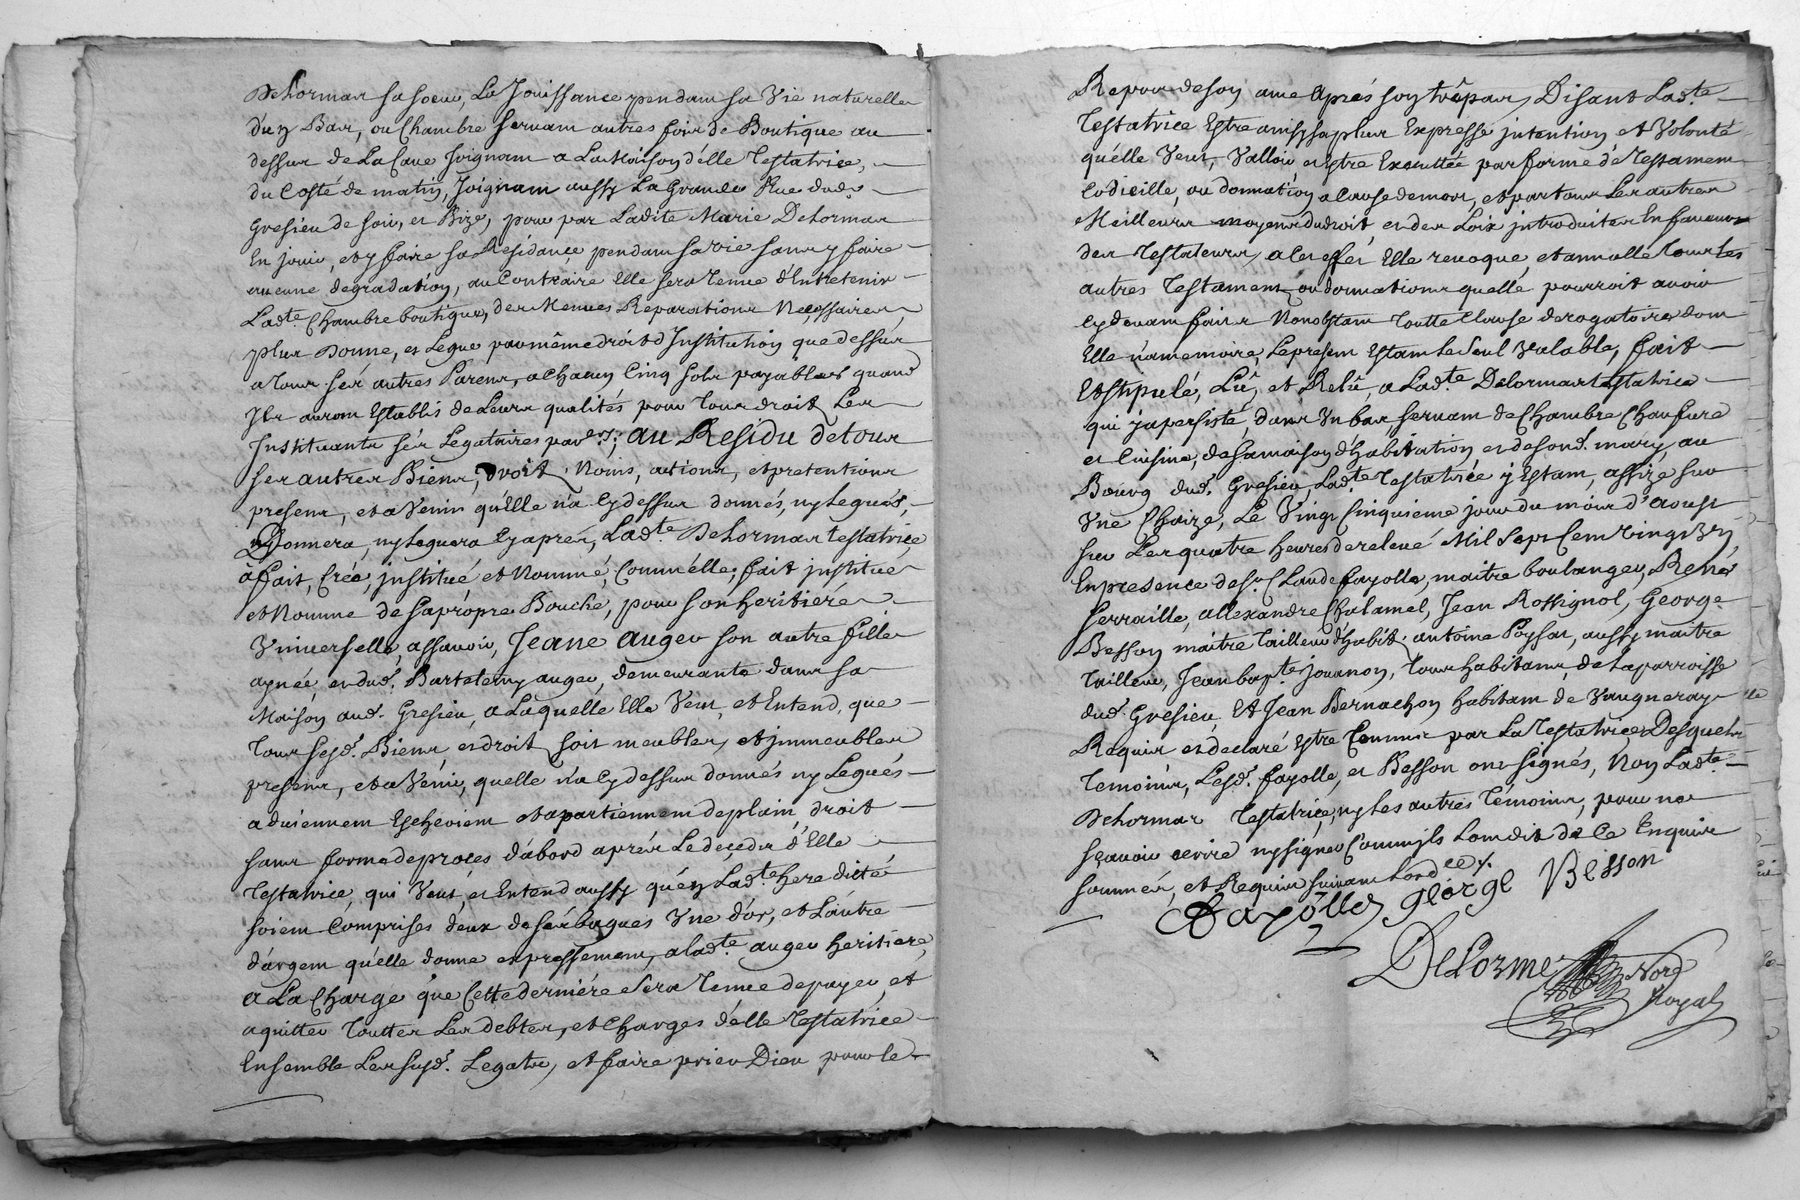 Delormas sa soeur, La Jouissance pendam sa Vie naturelle
d'un Bas, ou Chambre servam autres fois de Boutique au
dessus de La Cave Joignam a La Maison d'elle Testatrice,
du Costé de matin, Joignam aussy La Grande Rue dud.
Gresieu de soir, et Bize, pour par Ladite Marie Delormas
En jouir, et y faire sa Residance pendam sa vie sans y faire
aucune degradation, au Contraire Elle sera Tenue d'Entretenir
Lad.te Chambre boutique, des Menues Reparations Necessaires,
plus Donne, et Legue par même droit d'Institution que dessus
a Tous ses autres Parens, a chacun Cinq sols payables quand
Ils aurom Establis de Leurs qualités pour Tous droits Les
Instituants ses Legataires par.ers; au Residu de tous
ses autres Biens, droit, Noms, actions, et pretentions
presens, et a Venir qu'Elle n'a Cy dessus donnés, ny Legués,
ny Donnera, ny Leguera Cy aprés, Lad.te Delormas testatrice
a fait, Créé, institué et Nommé, Comme elle, fait institue
et Nomme de sa propre Bouche, pour son heritiére
Universelle, assavoir, Jeane auger son autre fille
aynée, et dud. Bartelemy auger, demeurante dans sa
Maison aud. Gresieu, a Laquelle Elle Veut, et Entend, que
Tous sesd. Biens et droit, soit meubles, et jmmeubles
presens, et a Venir, quelle n'a Cy dessus donnés ny Legués
aduiennem Escheoiem et apartiennem de plain droit
sans forme de proces d'abord aprés Le deçeds d'Elle
Testatrice, qui Veut, et Entend aussy qu'en Lad.te heredité
soiem Comprises deux de ses bagues Une d'or, et L'autre
d'argem qu'elle donne expressemem, a lad.te auger heritiere,
a La Charge que Cette derniére sera Tenue de payer, et
aquitter Toutes Les debtes, et Charges d'elle Testatrice
Ensemble Les susd. Legats, et faire prier Dieu pour le
Repos de son ame Aprés son trêpas, Disant Lad.te
Testatrice Estre ainsy sa plus Expresse jntention et Volonté
qu'elle Veut, Valloir et Estre Executtée par forme de Testamem
Codicille, ou donnation a Cause de mort, et par tous Les autres
Meilleurs moyens du droit, et des Loix jntroduites En faueur
des Testateurs, a Cet effet Elle revoque, et annulle Tous Les
autres Testamens ou donnations quelle pourroit auoir
Cy deuam faits Nonobstam Toutte Clause derogatoire dom
Elle n'a memoire, Le presem Estam Le seul Valable, fait
Et stipulé, Lû, et Relû, a Lad.te Delormas testatrice
qui y a persisté, dans Un bas servam de Chambre Chaufure
et Cuisine, de sa maison d'habitation et de sond. mary, au
Bourg dud. Gresieu, Lad.te Testatrice y Estam, assize sur
Une Chaize, Le Vingt Cinquieme jour du mois d'aoust
sur Les quatre heures de releué Mil Sept Cem Vingt Un
En presence de S.r Claude fayolle, maitre boulanger, René
Serraille, allexandre Chalamel, Jean Rossignol, George
Besson maitre Tailleur d'habit, antoine Poysat, aussy maitre
Tailleur, Jean bap.te jouanon, Tous habitans de La parroisse
dud. Gresieu Et Jean Bernachon habitam de Vaugneray
Requis et declaré Estre Connus par La Testatrice Desquels
Temoins, Lesd. fayolle, et Besson ont signés, Non Lad.te
Delormas Testatrice, ny Les autres Témoins, pour ne
sçavoir ecrire ny signer Comm'ils L'om dit de Ce Enquis
sommés, et Requis suivam L'ord.ce
Fayolle george Besson
Delorme
No.re Royal